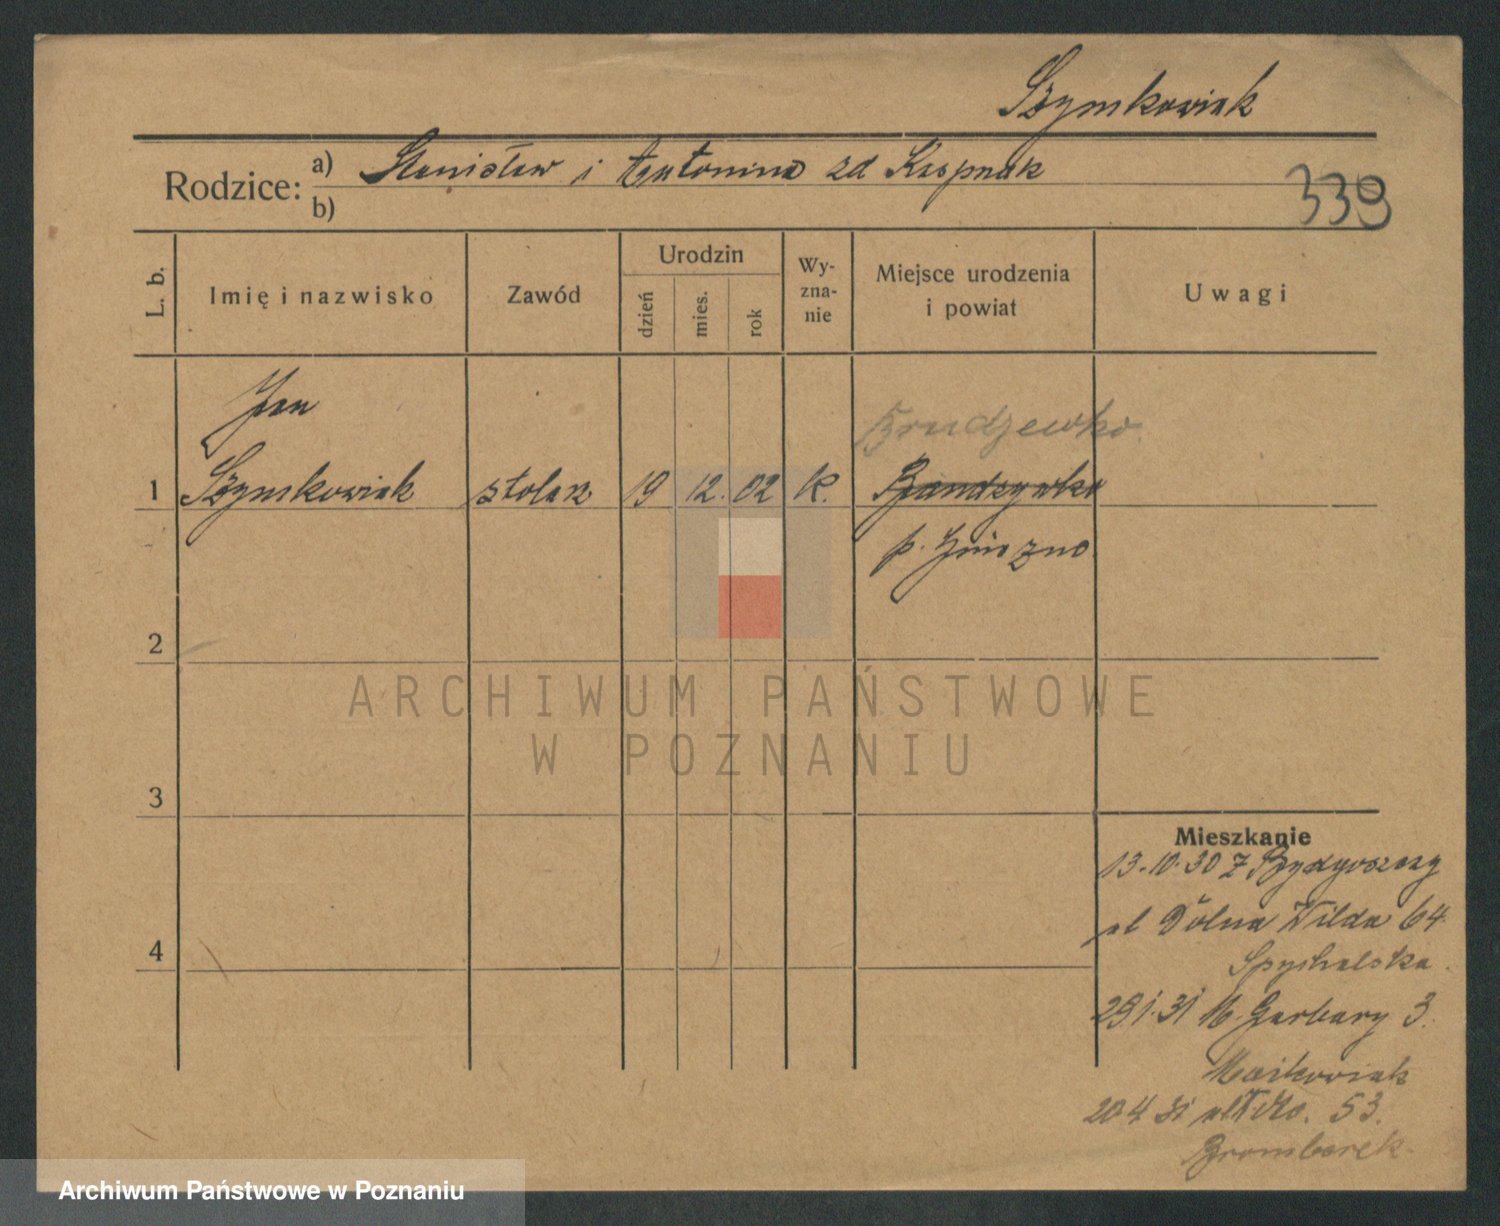 Szymkowiak
Rodzice: a) Stanisław i Antonina zd
b)
339
L. b.
Imię i nazwisko
Zawód
Urodzin
dzień
mies.
rok
Wy-
zna-
nie
Miejsce urodzenia
i powiat
Uwagi
Jan
Brudzewko
1 Szymkowiak stolarz 19 12. 02 k.
p. Gniezno
2
3
4
ARCHIWUM PAŃSTWOWE
W POZNANIU
Mieszkanie
13.10.30 z Bydgoszczy
ul Dolna Wilda 64
Spychalska
29.1.31 M. Garbary 3.
Maćkowiak
20 4 31 53.
Archiwum Państwowe w Poznaniu